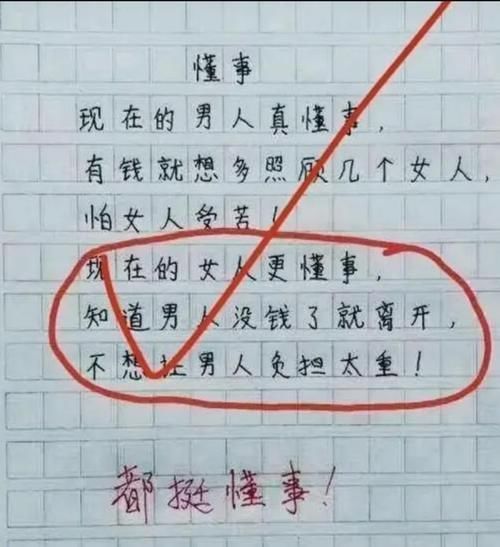 懂事
现在的男人真懂事,
有钱就想多照顾几个女人,
怕女人受苦!
现在的女人更懂事,
知道男人没钱了就离开,
不想让男人负担太重!
都挺懂事!